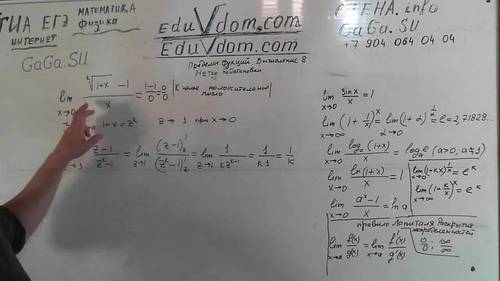 ГИА ЕГЭ МАТЕМАТИКА
физика
ИНТЕРНЕТ
GaGa.SU
EduVdom.com
EduVdom.com
Пределы функций Вычисление 8
Метод
СТЕНА.info
GaGa.SU
+7 904 064 04 04
lim x→0 (ᵏ√(1+x) − 1)/x = (1−1)/0 = 0/0 | К целое положительное число
1+x = zᵏ z → 1 при x → 0
(z−1)/(zᵏ−1) = lim z→1 (z−1)'/(zᵏ−1)' = lim z→1 1/(k zᵏ⁻¹) = 1/(k·1) = 1/k
lim x→0 sinx/x = 1
lim x→∞ (1 + 1/x)ˣ = lim α→0 (1+α)^(1/α) = e = 2,71828...
lim x→0 logₐ(1+x)/x = logₐe (a>0, a≠1)
lim x→0 ln(1+x)/x = 1
lim x→0 (1+kx)^(1/x) = eᵏ
lim x→∞ (1+k/x)ˣ = eᵏ
lim x→0 (aˣ−1)/x = ln a
правило Лопиталя Раскрытие неопределенностей
lim x→a f(x)/g(x) = lim x→a f'(x)/g'(x) 0/0, ∞/∞